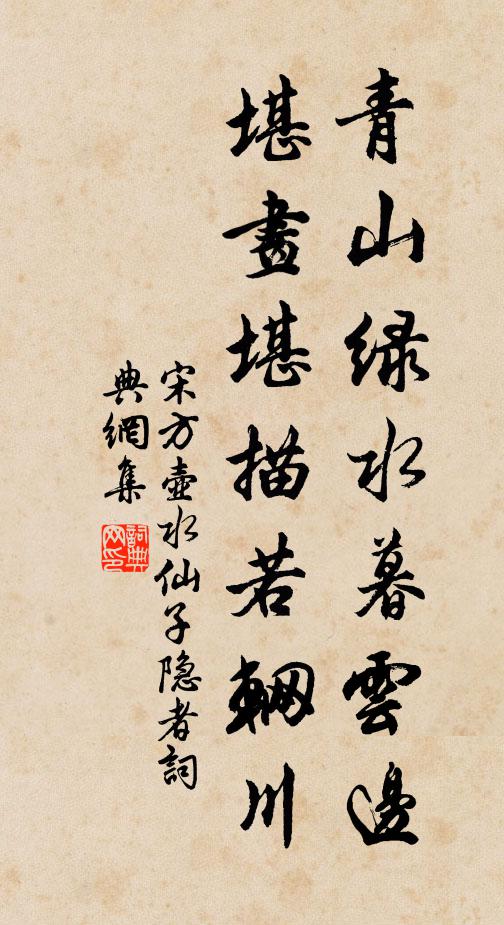 青山绿水暮雲邊
堪畫堪描若輞川
宋方壺水仙子隐者詞
典網集
詞典網印